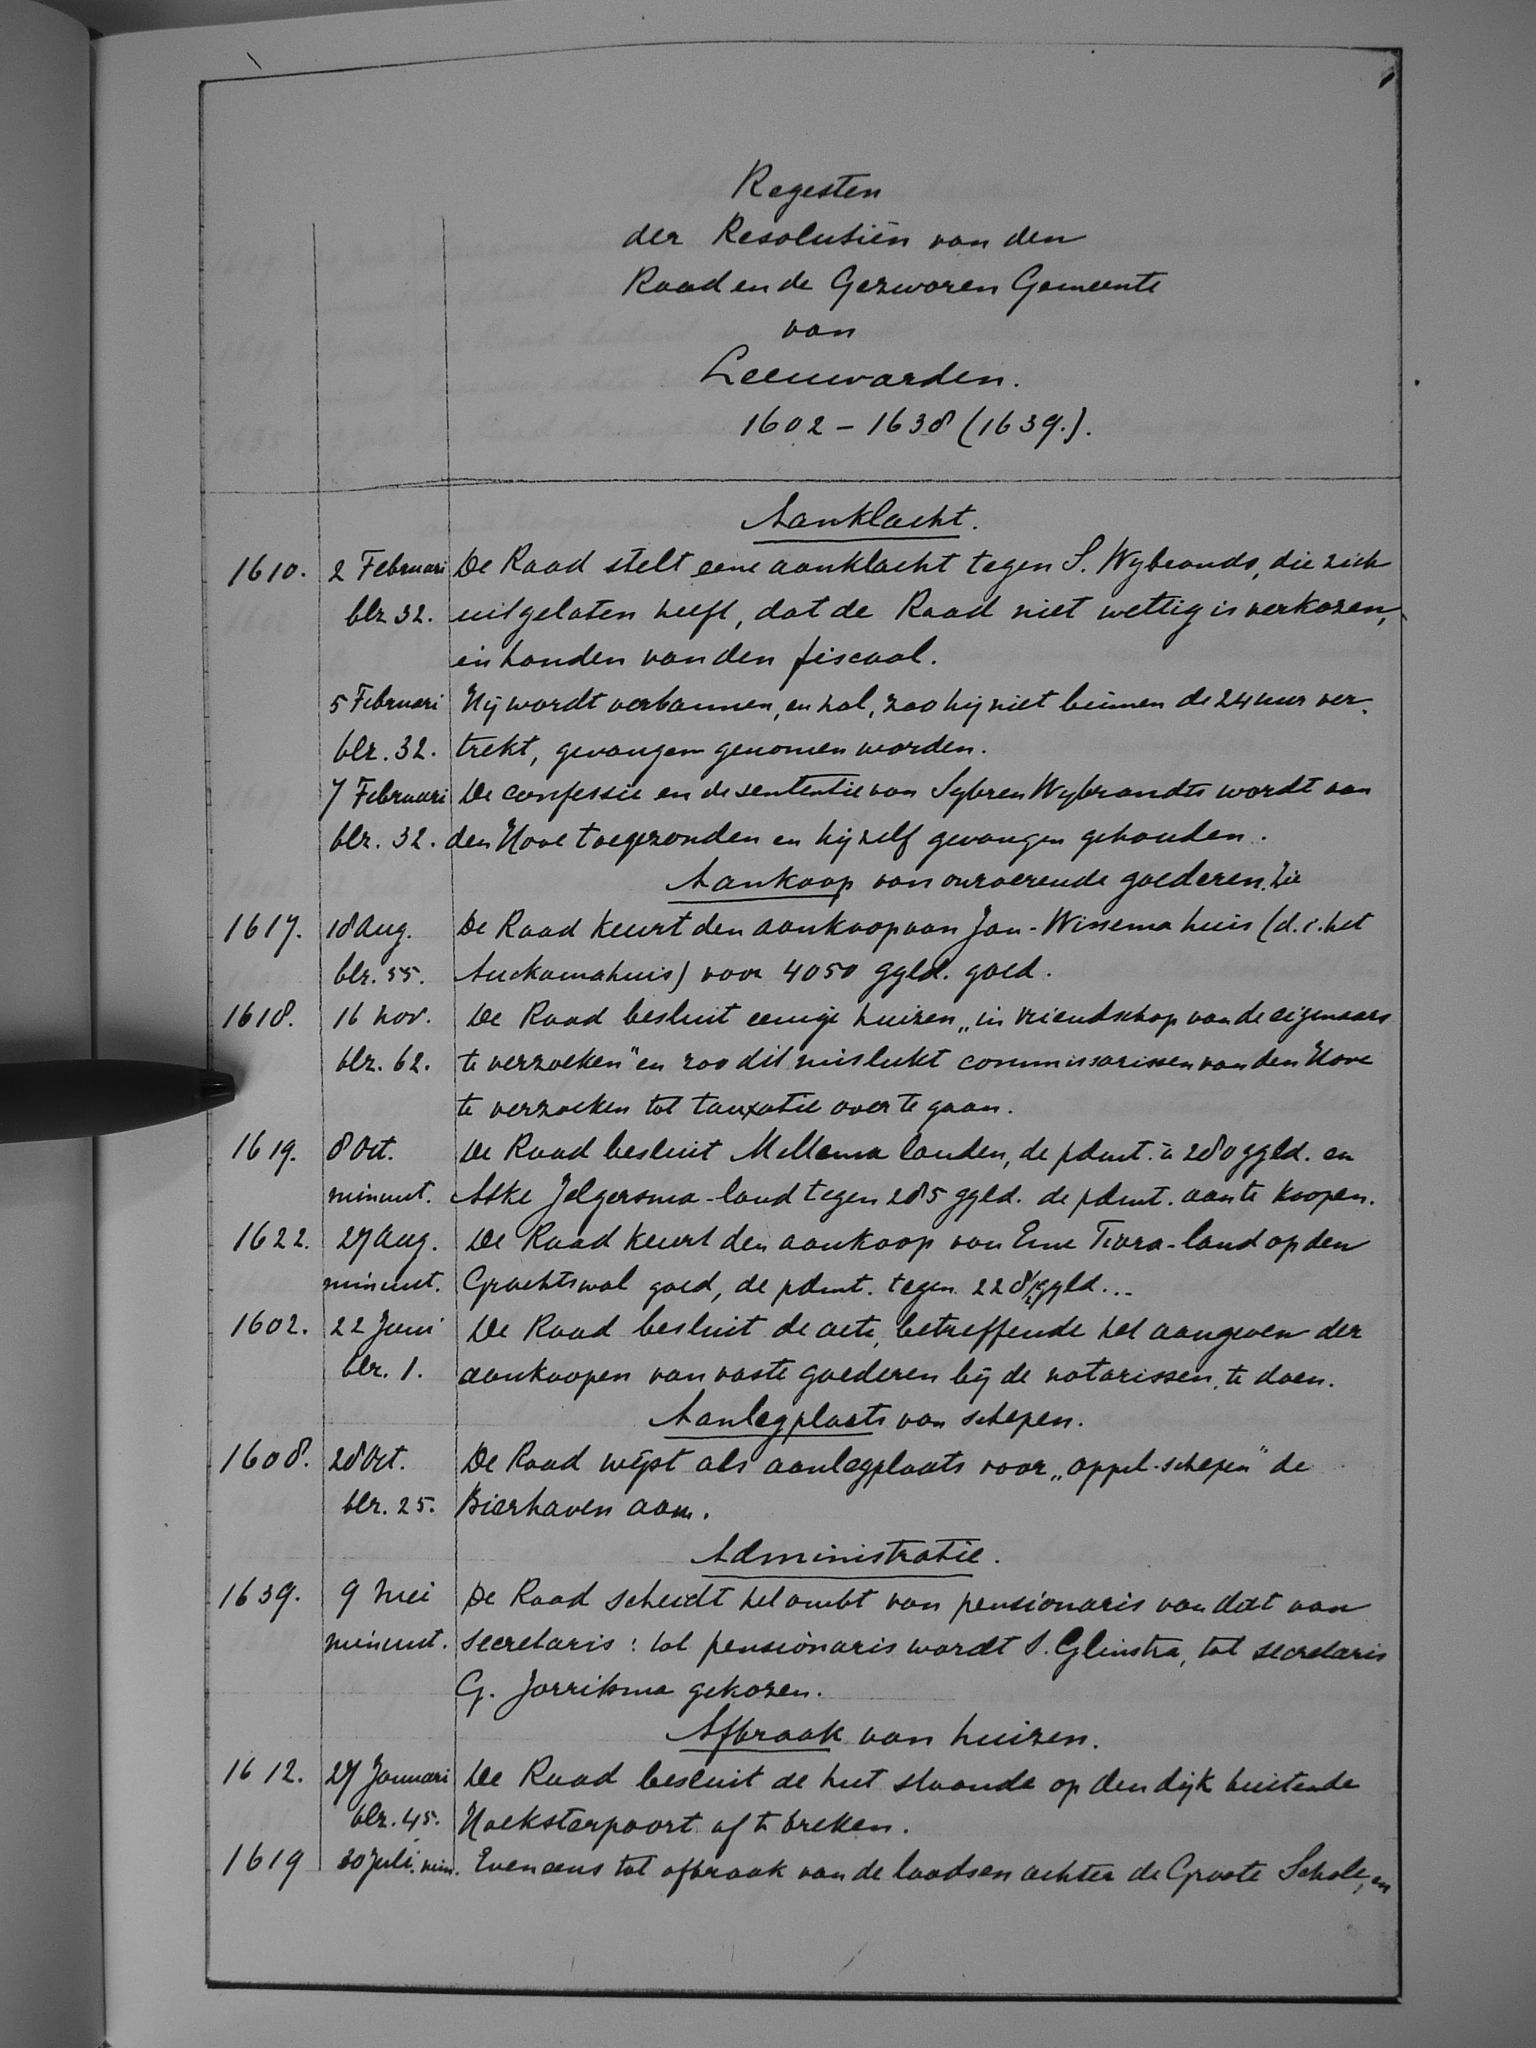 Regesten
der Resolutiën van den
Raad en de Gezworen Gemeente
van
Leeuwarden.
1602 – 1638 (1639.).
Aanklacht.
1610. 2 Februari De Raad stelt eene aanklacht tegen S. Wybrands, die zich
blz 32. uitgelaten heeft, dat de Raad niet wettig is verkozen,
in handen van den fiscaal.
5 Februari Hij wordt verbannen, en zal, zoo hij niet binnen de 24 uur ver-
blz. 32. trekt, gevangen genomen worden.
7 Februari De confessie en de sententie van Sybren Wybrandts wordt van
blz. 32. den Hove toegezonden en hijzelf gevangen gehouden.
Aankoop van onroerende goederen. Zie
1617. 18 Aug. De Raad keurt den aankoop van Jan-Wissema huis (d.i. het
blz. 55. Auckamahuis) voor 4050 ggld. goed.
1618. 16 Nov. De Raad besluit eenige huizen „in vriendschap van de eigenaars
blz. 62. te verzoeken" en zoo dit mislukt commissarissen van den Hove
te verzoeken tot tauxatie over te gaan.
1619. 8 Oct. De Raad besluit Mellema landen, de pdmt. à 280 ggld. en
minuut. Aske Jelgersma-land tegen 285 ggld. de pdmt. aan te koopen.
1622. 27 Aug. De Raad keurt den aankoop van Eme Tiara-land op den
minuut. Grachtswal goed, de pdmt. tegen 228 ggld...
1602. 22 Juni De Raad besluit de acte, betreffende het aangeven der
blz. 1. aankoopen van vaste goederen bij de notarissen, te doen.
Aanlegplaats van schepen.
1608. 28 Oct. De Raad wijst als aanlegplaats voor „appel-schepen" de
blz. 25. Bierhaven aan.
Administratie.
1639. 9 Mei De Raad scheidt het ambt van pensionaris van dat van
minuut. secretaris: tot pensionaris wordt S. Glinstra, tot secretaris
G. Jorritsma gekozen.
Afbraak van huizen.
1612. 27 Januari De Raad besluit de hut staande op den dijk buiten de
blz. 45. Hoeksterpoort af te breken.
1619 30 Juli. min. Eveneens tot afbraak van de loodsen achter de Groote Schole, en